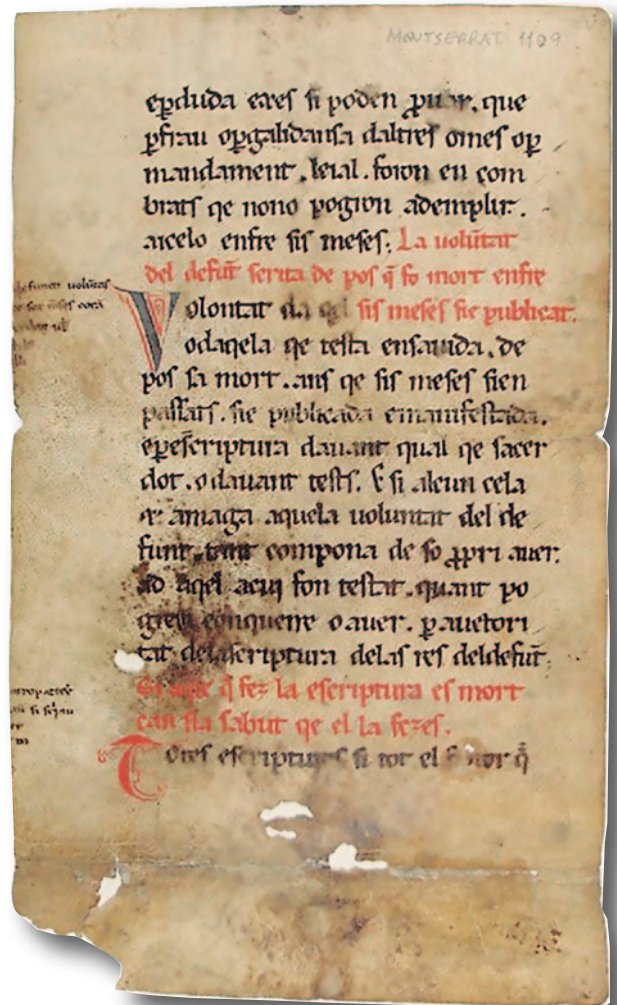 MONTSERRAT 1109
eꝑduda eres si poden ꝓuar. que
ꝑfrau oꝑgalidansa daltres omes oꝑ
mandament. leial. foron en com
brats qe nono pogron ademplir.
aicelo enfre sis meses. La uolũtat
del defũt scrita de pos q̃ fo mort enfre
Volontat da qel sis meses sie publicat.
odaqela qe testa ensauida. de
pos sa mort. ans qe sis meses sien
passats. sie publicada emanifestada.
eꝑescriptura dauant qual qe sacer
dot. o dauant tests. E si alcun cela
amaga aquela uoluntat del de
funt. tant compona de so ꝓpri auer.
ad aqel acuj fon testat. quant po
gren conquerre o auer. ꝑ auctori
tat delascriptura delas res deldefũt.
q̃ fez la escriptura es mort
can sia sabut qe el la fezes.
Totes escriptures si tot el q̃